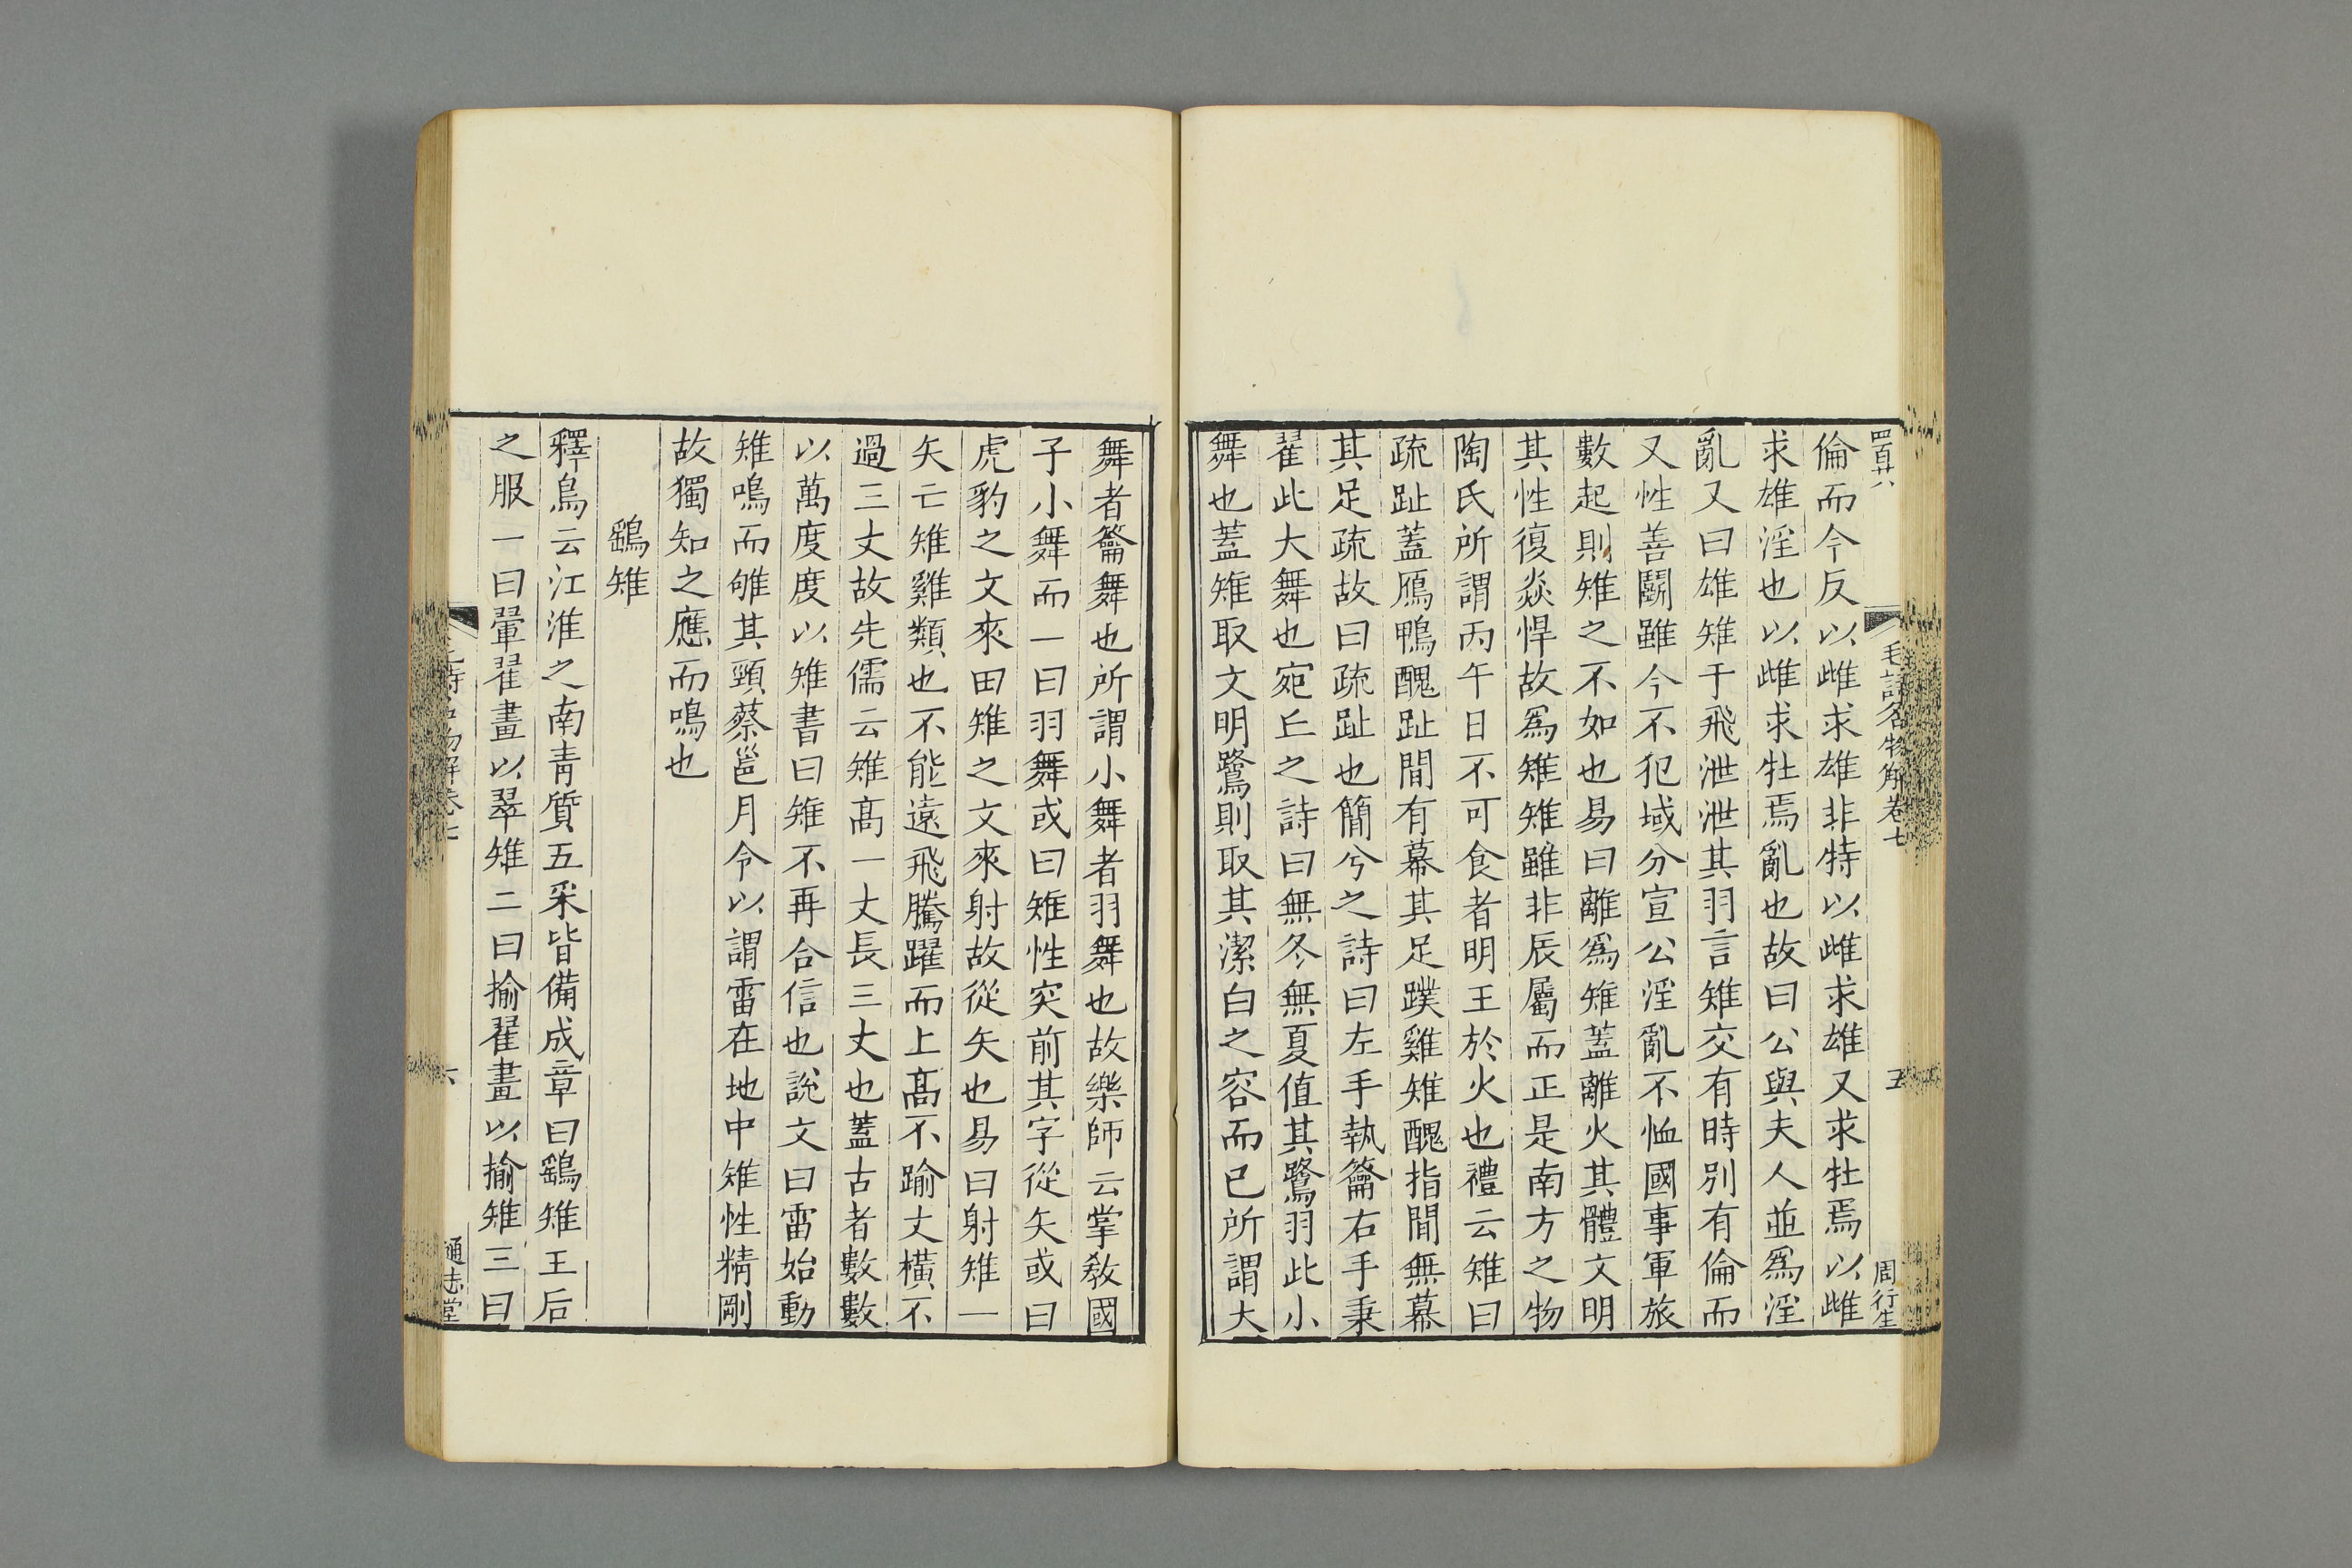 毛詩名物解卷七
五
周行生
倫而今反以雌求雄非特以雌求雄又求牡焉以雌
求雄淫也以雌求牡焉亂也故曰公與夫人並爲淫
亂又曰雄雉于飛泄泄其羽言雉交有時別有倫而
又性善鬭雖今不犯域分宣公淫亂不恤國事軍旅
數起則雉之不如也易曰離爲雉蓋離火其體文明
其性復焱悍故爲雉雉雖非辰屬而正是南方之物
陶氏所謂丙午日不可食者明王於火也禮云雉曰
疏趾蓋鴈鴨醜趾間有幕其足蹼雞雉醜指間無幕
其足疏故曰疏趾也簡兮之詩曰左手執籥右手秉
翟此大舞也宛丘之詩曰無冬無夏值其鷺羽此小
舞也蓋雉取文明鷺則取其潔白之容而已所謂大
舞者籥舞也所謂小舞者羽舞也故樂師云掌敎國
子小舞而一曰羽舞或曰雉性突前其字從矢或曰
虎豹之文來田雉之文來射故從矢也易曰射雉一
矢亡雉雞類也不能遠飛騰躍而上高不踰丈橫不
過三丈故先儒云雉高一丈長三丈也蓋古者數數
以萬度度以雉書曰雉不再合信也說文曰雷始動
雉鳴而雊其頸蔡邕月令以謂雷在地中雉性精剛
故獨知之應而鳴也
鷂雉
釋鳥云江淮之南青質五采皆備成章曰鷂雉王后
之服一曰翬翟畫以翠雉二曰揄翟畫以揄雉三曰
六
通志堂